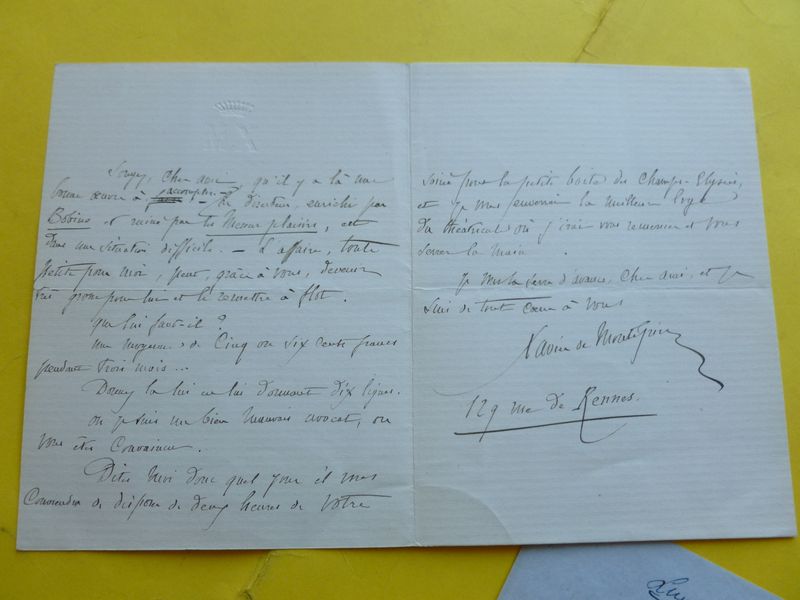 Songez, cher ami, qu'il y a là une
bonne œuvre à accomplir. — Le directeur, enrichi par
Bobino et ruiné par les Menus plaisirs, est
dans une situation difficile. — L'affaire, toute
petite pour moi, peut, grâce à vous, devenir
très grosse pour lui et le remettre à flot.
Que lui faut-il ?
une moyenne de cinq ou six cents francs
pendant trois mois...
Donnez la lui en lui donnant dix lignes.
ou je suis un bien mauvais avocat, ou
vous êtes convaincu.
Dites moi donc quel jour il vous
conviendra de disposer de deux heures de votre
soirée pour la petite boite des Champs-Elysées,
et je vous enverrai la meilleure loge
du théâtricule où j'irai vous remercier et vous
serrer la main.
Je vous la serre d'avance, cher ami, et je
suis de tout cœur à vous
Xavier de Montépin
129 rue de Rennes.